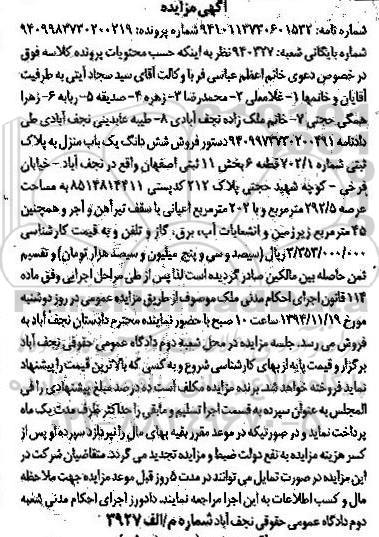 آگهی مزایده
شماره نامه: ۹۴۱۰۱۱۳۷۳۰۶۰۱۵۳۲ شماره پرونده: ۹۴۰۹۹۸۳۷۳۰۲۰۰۲۱۹
شماره بایگانی شعبه: ۹۴۰۳۳۷ نظر به اینکه حسب محتویات پرونده کلاسه فوق
در خصوص دعوی خانم اعظم عباسی فر با وکالت آقای سید سجاد آیتی به طرفیت
آقایان و خانمها ۱- غلامعلی ۲- محمدرضا ۳- زهره ۴- صدیقه ۵- ربابه ۶- زهرا
همگی حجتی ۷- خانم ملک زاده نجف آبادی ۸- طیبه عابدینی نجف آبادی طی
دادنامه ۹۴۰۹۹۷۳۷۳۰۲۰۰۴۹۱ دستور فروش شش دانگ یک باب منزل به پلاک
ثبتی شماره ۷۰۲/۱ قطعه ۶ بخش ۱۱ ثبتی اصفهان واقع در نجف آباد - خیابان
فرخی - کوچه شهید حجتی پلاک ۲۱۲ کدپستی ۸۵۱۴۸۱۴۴۱۱ به مساحت
عرصه ۲۹۲/۵ مترمربع و با ۲۰۲ مترمربع اعیانی با سقف تیرآهن و آجر و همچنین
۴۵ مترمربع زیرزمین و انشعابات آب، برق، گاز و تلفن و به قیمت کارشناسی
۳/۳۵۳/۰۰۰/۰۰۰ ریال (سیصد و سی و پنج میلیون و سیصد هزار تومان) و تقسیم
ثمن حاصله بین مالکین صادر گردیده است لذا پس از طی مراحل اجرایی وفق ماده
۱۱۴ قانون اجرای احکام مدنی ملک موصوف از طریق مزایده عمومی در روز دوشنبه
مورخ ۱۳۹۴/۱۱/۱۹ ساعت ۱۰ صبح با حضور نماینده محترم دادستان نجف آباد به
فروش می رسد. جلسه مزایده در محل شعبه دوم دادگاه عمومی حقوقی نجف آباد
برگزار و قیمت پایه از بهای کارشناسی شروع و به کسی که بالاترین قیمت را پیشنهاد
نماید فروخته خواهد شد. برنده مزایده مکلف است ده درصد مبلغ پیشنهادی را فی
المجلس به عنوان سپرده به قسمت اجرا تسلیم و مابقی را حداکثر ظرف مدت یک ماه
پرداخت نماید و در صورتیکه در موعد مقرر بقیه بهای مال را نپردازد سپرده او پس از
کسر هزینه مزایده به نفع دولت ضبط و مزایده تجدید می گردد. متقاضیان شرکت در
این مزایده در صورت تمایل می توانند در مدت ۵ روز قبل موعد مزایده جهت ملاحظه
مال و کسب اطلاعات به این اجرا مراجعه نمایند. دادورز اجرای احکام مدنی شعبه
دوم دادگاه عمومی حقوقی نجف آباد شماره م/الف ۳۹۲۷